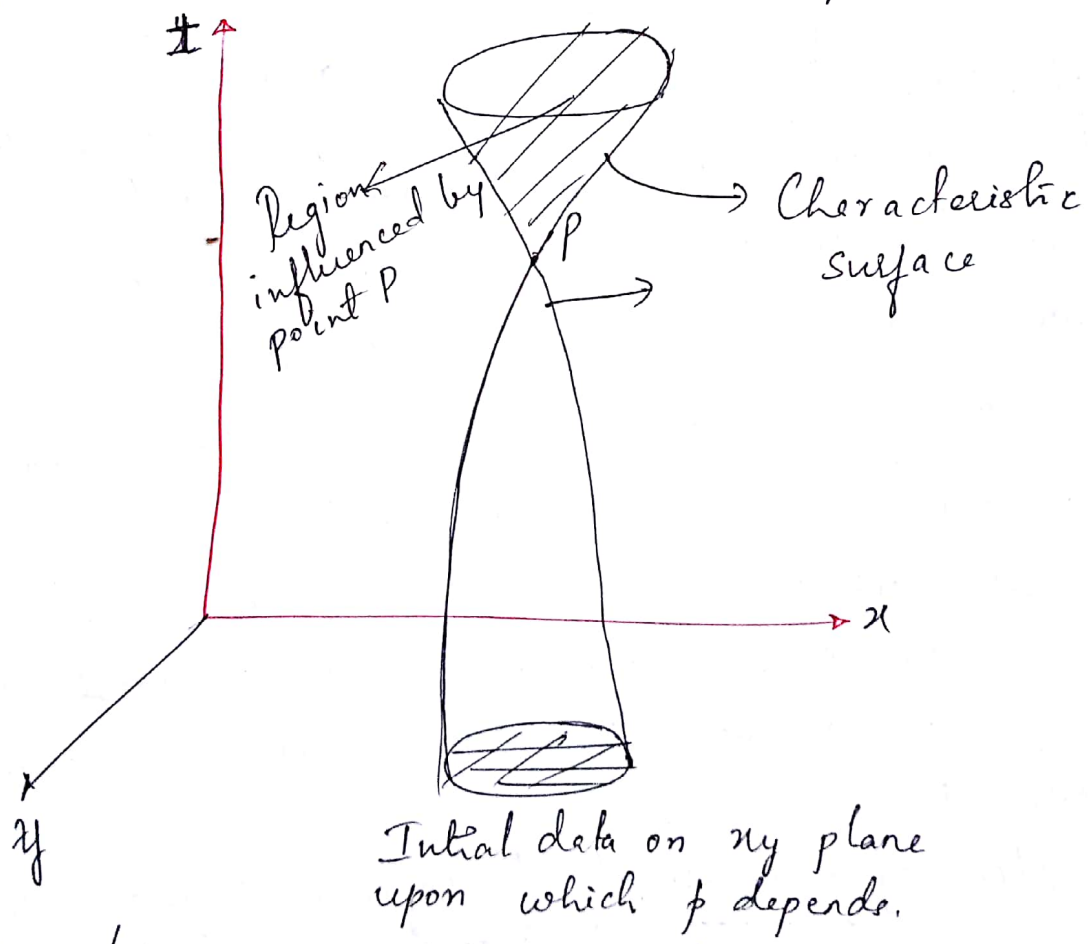 t
Region
influenced by
point P
P
Characteristic
surface
x
y
Intial data on xy plane
upon which p depends.